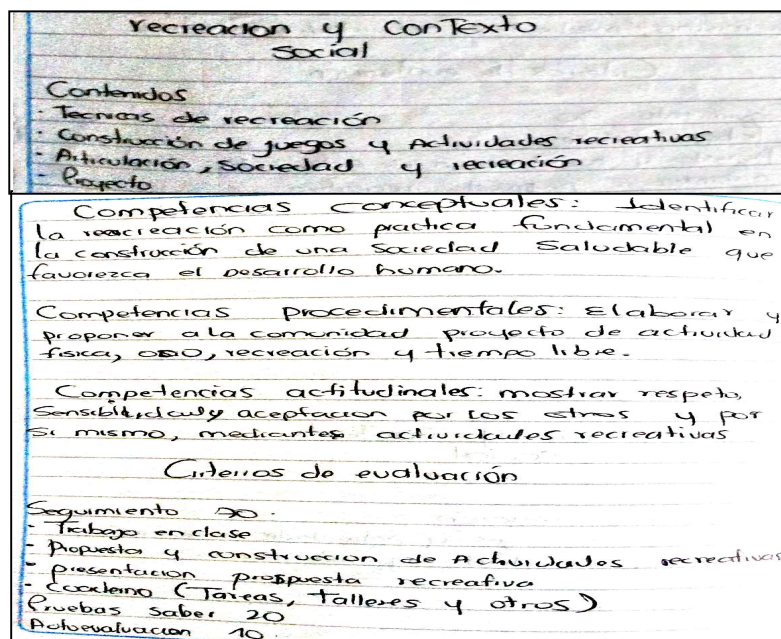 recreacion y contexto
social
Contenidos
- Tecnicas de recreación
- Construcción de juegos y Actividades recreativas
- Articulación, sociedad y recreación
- Proyecto
Competencias conceptuales: Identificar
la recreación como practica fundamental en
la construcción de una sociedad saludable que
favorezca el Desarrollo humano.
Competencias procedimentales: Elaborar y
proponer a la comunidad proyecto de actividad
fisica, ocio, recreación y tiempo libre.
Competencias actitudinales: mostrar respeto,
Sensibilidad y aceptacion por los otros y por
si mismo, mediantes actividades recreativas
Criterios de evaluación
Seguimiento 70.
- Trabajo en clase
- Propuesta y construccion de Actividades recreativas
- presentacion propuesta recreativa
- Cuaderno (Tareas, talleres y otros)
Pruebas saber 20
Autoevaluacion 10.